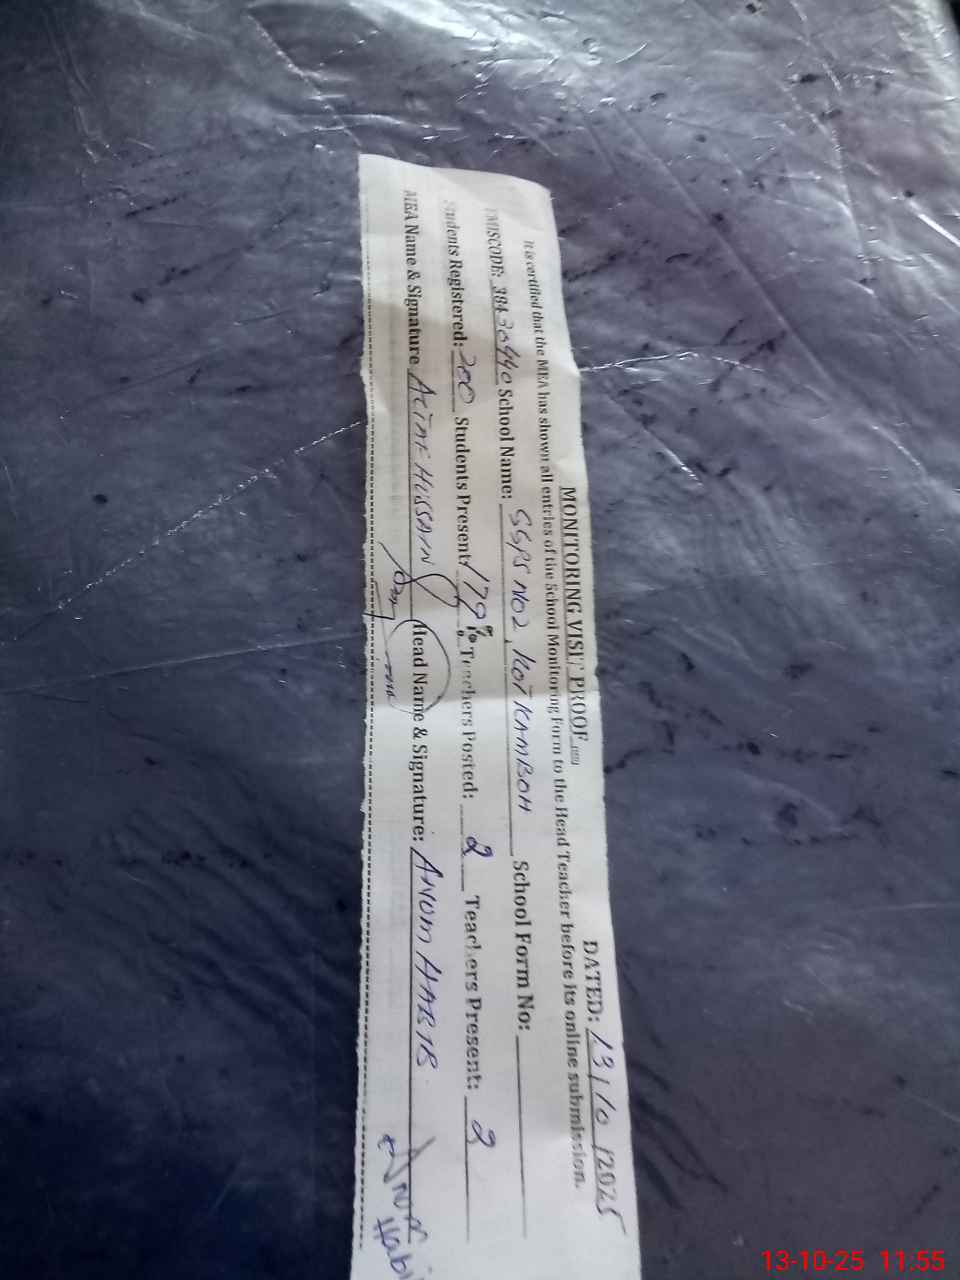 MONITORING VISIT PROOF
DATED: 13/10/2025
It is certified that the MEA has shown all entries of the School Monitoring Form to the Head Teacher before its online submission.
EMISCODE: 38430440 School Name: GGPS NO2, KOT KAMBOH School Form No:
Students Registered: 200 Students Present: 179 Teachers Posted: 2 Teachers Present: 2
MEA Name & Signature ALTAF HUSSAIN Head Name & Signature: ANUM HABIB
Habi
13-10-25 11:55